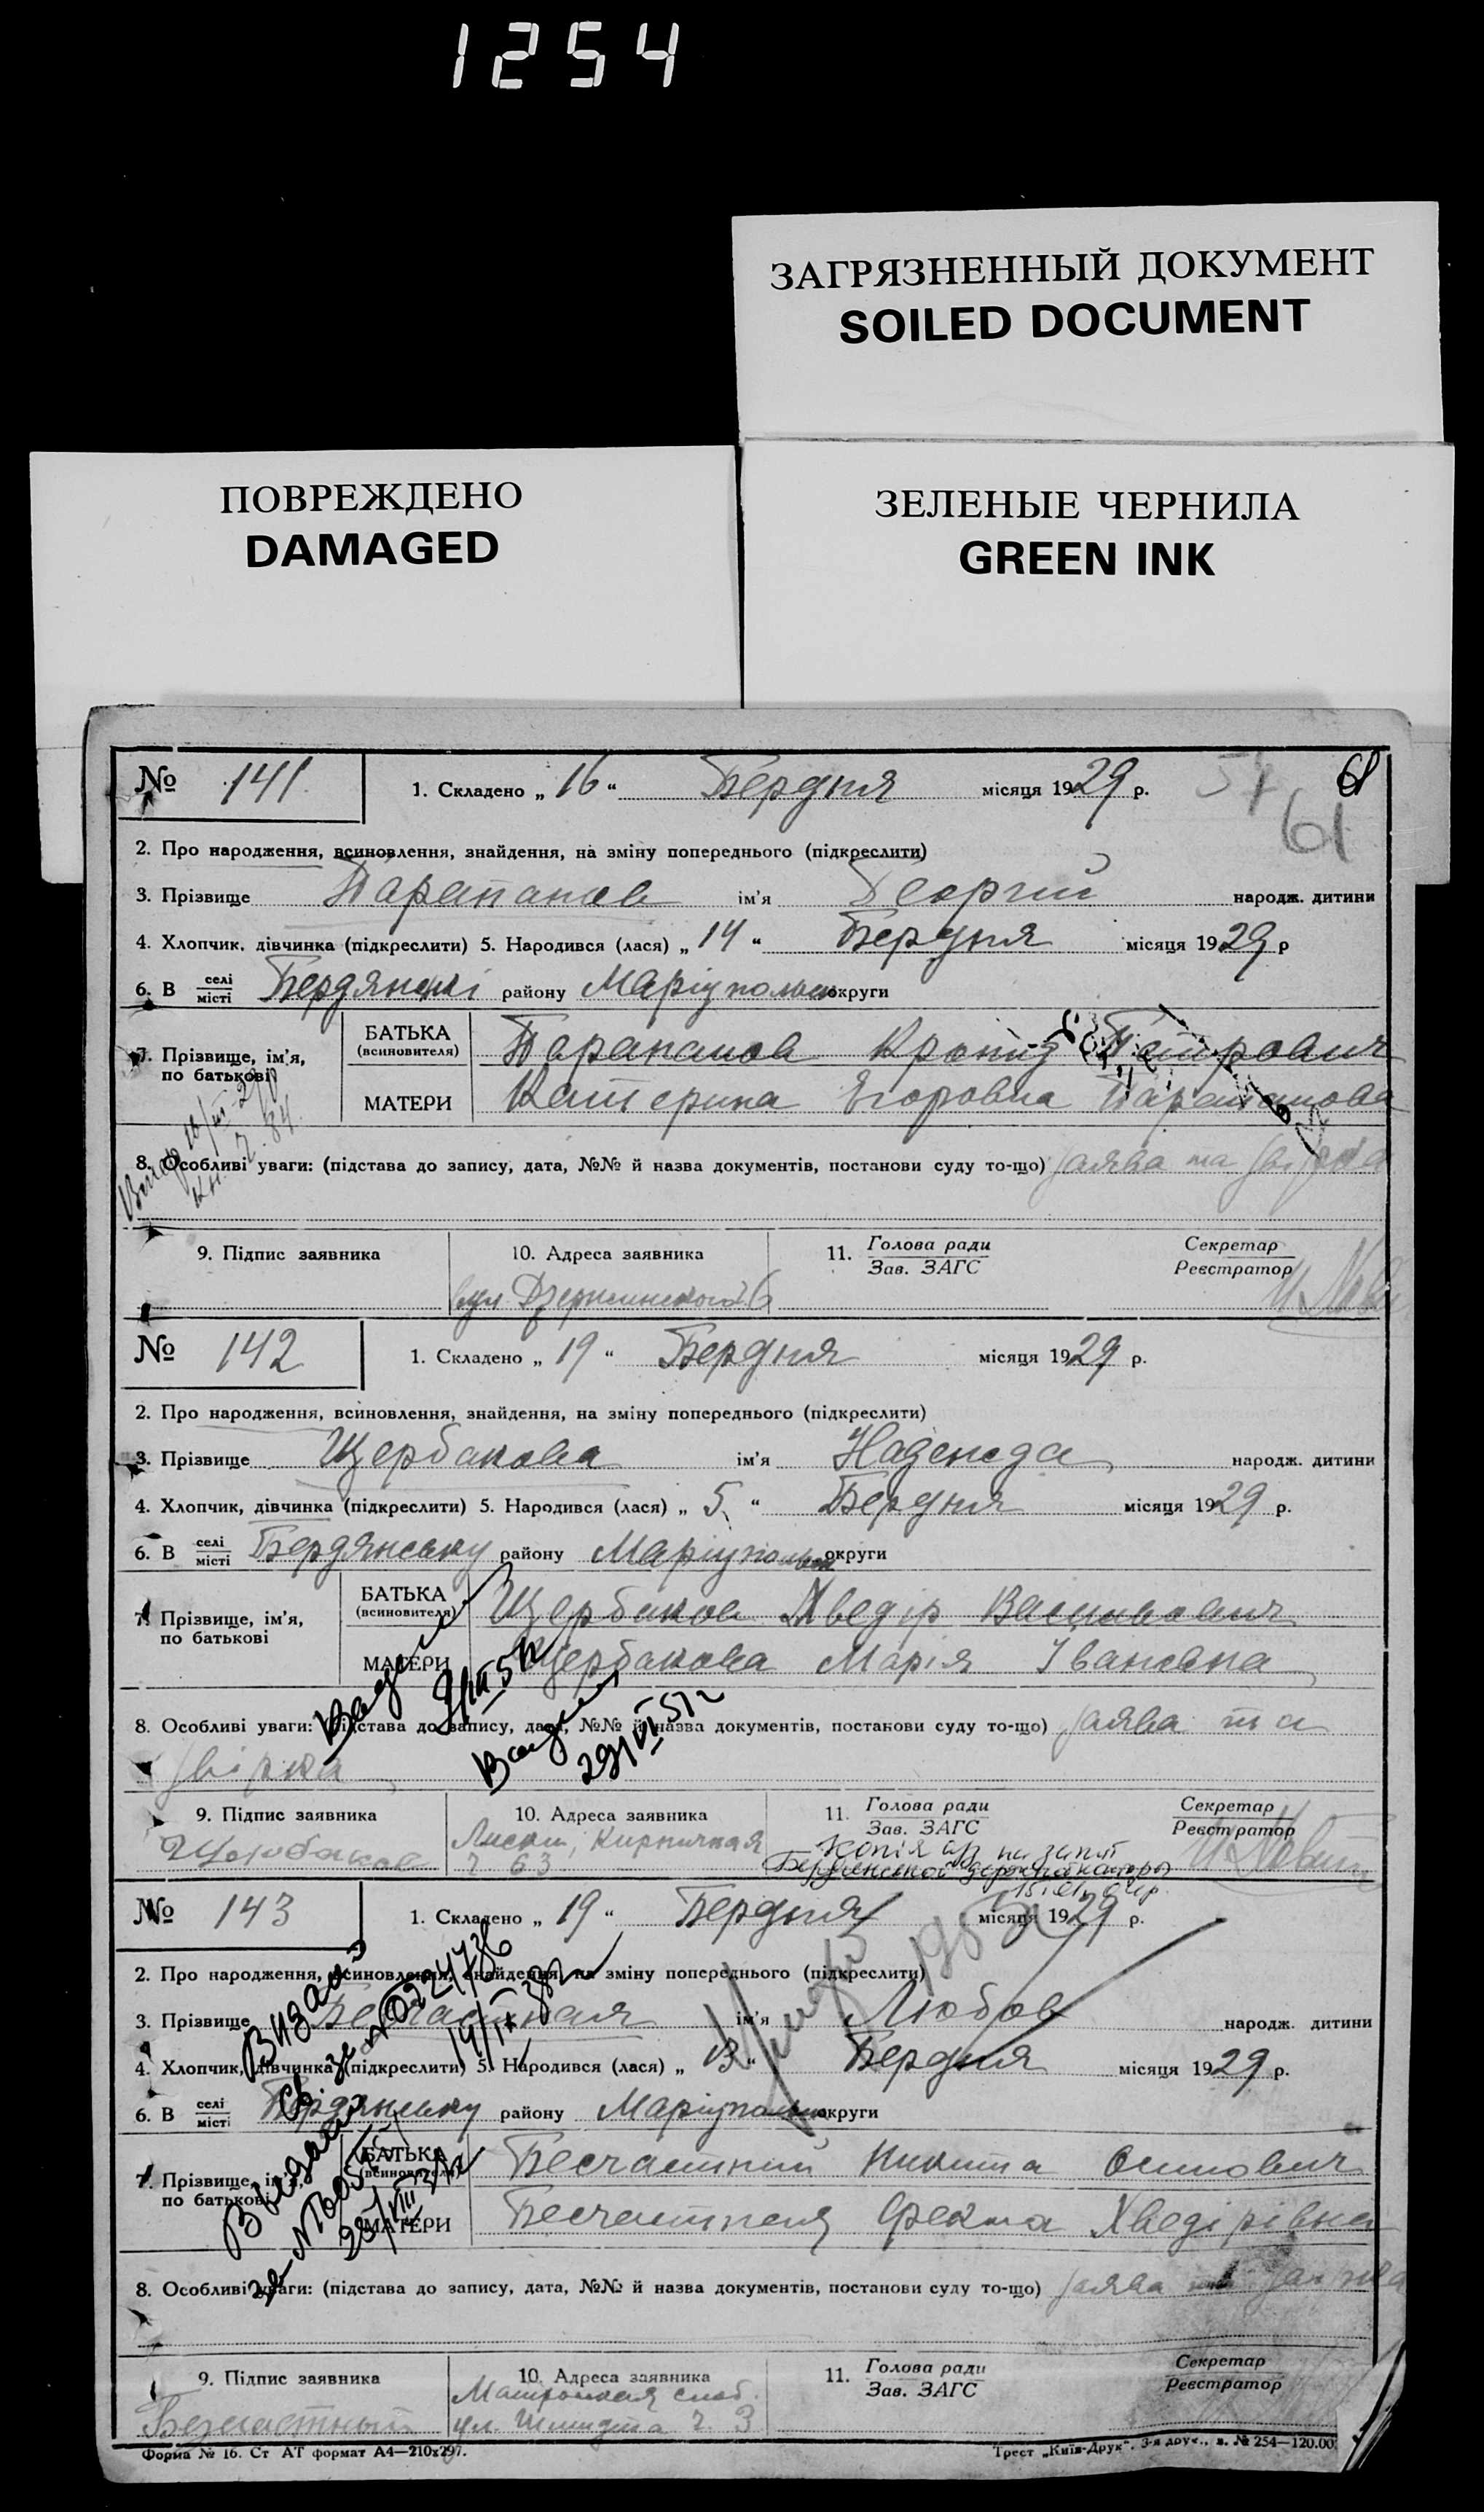 1254
ЗАГРЯЗНЕННЫЙ ДОКУМЕНТ
SOILED DOCUMENT
ПОВРЕЖДЕНО
DAMAGED
ЗЕЛЕНЫЕ ЧЕРНИЛА
GREEN INK
№ 141 1. Складено „ 16 “ Бердня місяця 1929 р. 61
61
2. Про народження, всиновлення, знайдення, на зміну попереднього (підкреслити)
3. Прізвище ім'я Георгій народж. дитини
4. Хлопчик, дівчинка (підкреслити) 5. Народився (лася) „ 14 “ Бердня місяця 1929 р
6. В селі/місті Бердянські району Маріупольск округи
7. Прізвище, ім'я, по батькові
БАТЬКА (всиновителя) Петрович
МАТЕРИ Катерина Егоровна
8. Особливі уваги: (підстава до запису, дата, №№ й назва документів, постанови суду то-що) заява та
9. Підпис заявника 10. Адреса заявника 11. Голова ради Зав. ЗАГС Секретар Реєстратор
вул Дзержинського
№ 142 1. Складено „ 19 “ Бердня місяця 1929 р.
2. Про народження, всиновлення, знайдення, на зміну попереднього (підкреслити)
3. Прізвище Щербакова ім'я Надежда народж. дитини
4. Хлопчик, дівчинка (підкреслити) 5. Народився (лася) „ 5 “ Бердня місяця 1929 р.
6. В селі/місті Бердянську району Маріупольск округи
7. Прізвище, ім'я, по батькові
БАТЬКА (всиновителя) Щербаков Хведір Василович
МАТЕРИ Щербакова Марія Івановна
8. Особливі уваги: (підстава до запису, дата, №№ й назва документів, постанови суду то-що) заява та
звірка
9. Підпис заявника 10. Адреса заявника 11. Голова ради Зав. ЗАГС Секретар Реєстратор
Щербаков Лиски, Кирпичная
ч 63
№ 143 1. Складено „ 19 “ Бердня місяця 1929 р.
2. Про народження, всиновлення, знайдення, на зміну попереднього (підкреслити)
3. Прізвище Бесчастная ім'я Любов народж. дитини
4. Хлопчик, дівчинка (підкреслити) 5. Народився (лася) „ 13 “ Бердня місяця 1929 р.
6. В селі/місті Бердянську району Маріупольск округи
7. Прізвище, ім'я, по батькові
БАТЬКА (всиновителя) Бесчастний Никита Осипович
МАТЕРИ Бесчастная Фекла Хведірівна
8. Особливі уваги: (підстава до запису, дата, №№ й назва документів, постанови суду то-що) заява
9. Підпис заявника 10. Адреса заявника 11. Голова ради Зав. ЗАГС Секретар Реєстратор
Безчастный слоб.
ул. Шмидта ч. 3
Форма № 16. Ст АТ формат А4—210х297. Трест „Київ-Друк“. 3-я друк., з. № 254—120.00